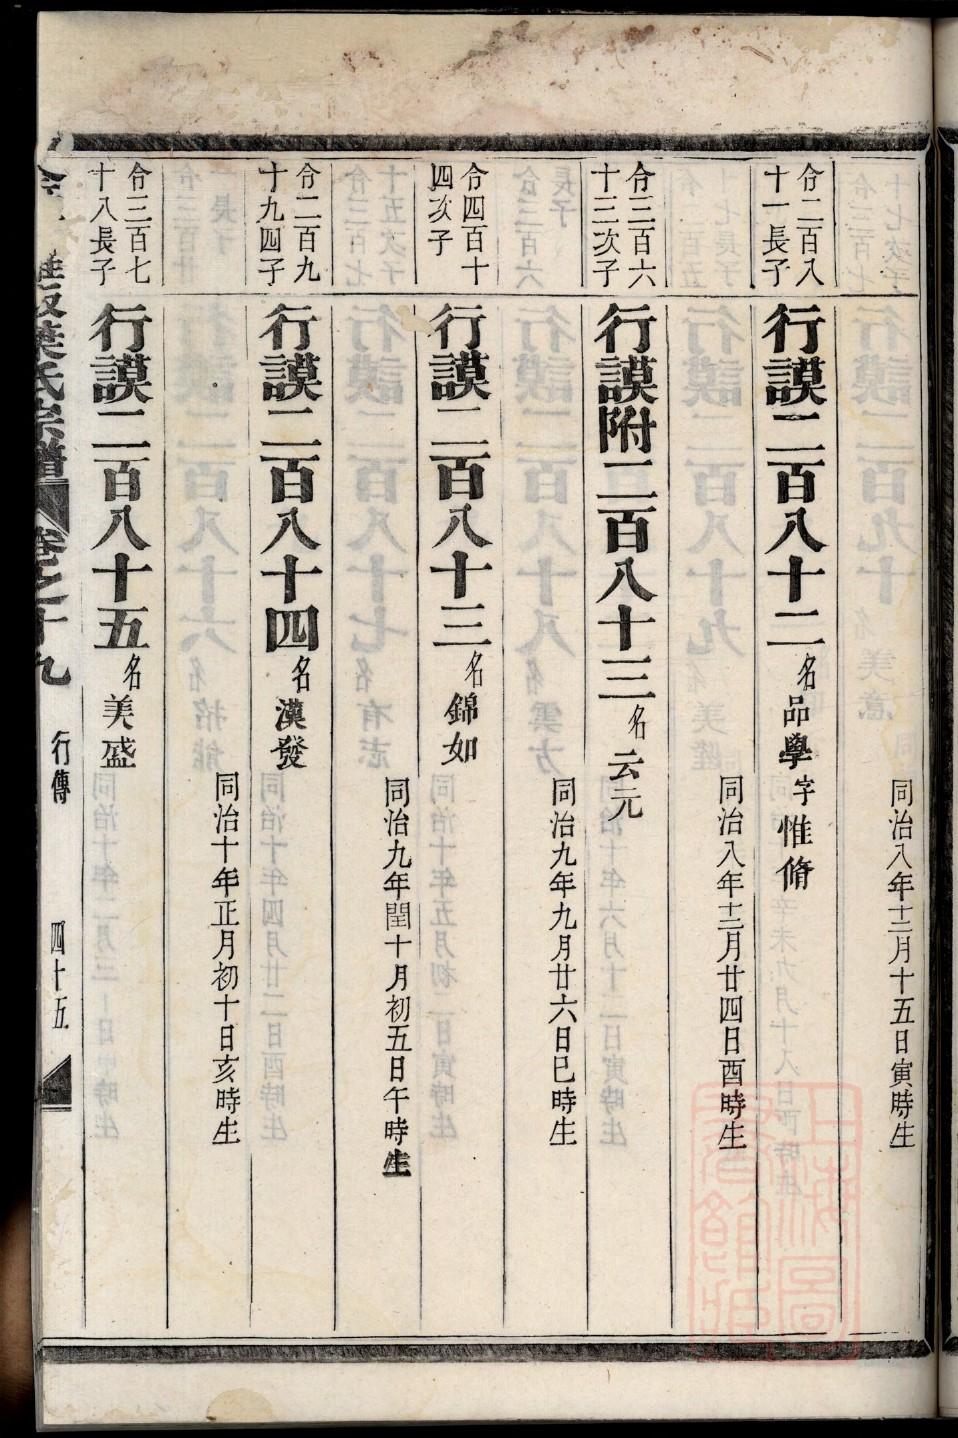 同治八年十二月十五日寅時生
合二百八十一長子
行謨二百八十二 名品學 字惟脩
同治八年十二月廿四日酉時生
合三百六十三次子
行謨附二百八十三 名云元
同治九年九月廿六日巳時生
合四百十四次子
行謨二百八十三 名錦如
同治九年閏十月初五日午時生
合二百九十九四子
行謨二百八十四 名漢發
同治十年正月初十日亥時生
合三百七十八長子
行謨二百八十五 名美盛
葉氏宗譜 卷之十九 行傳 四十五